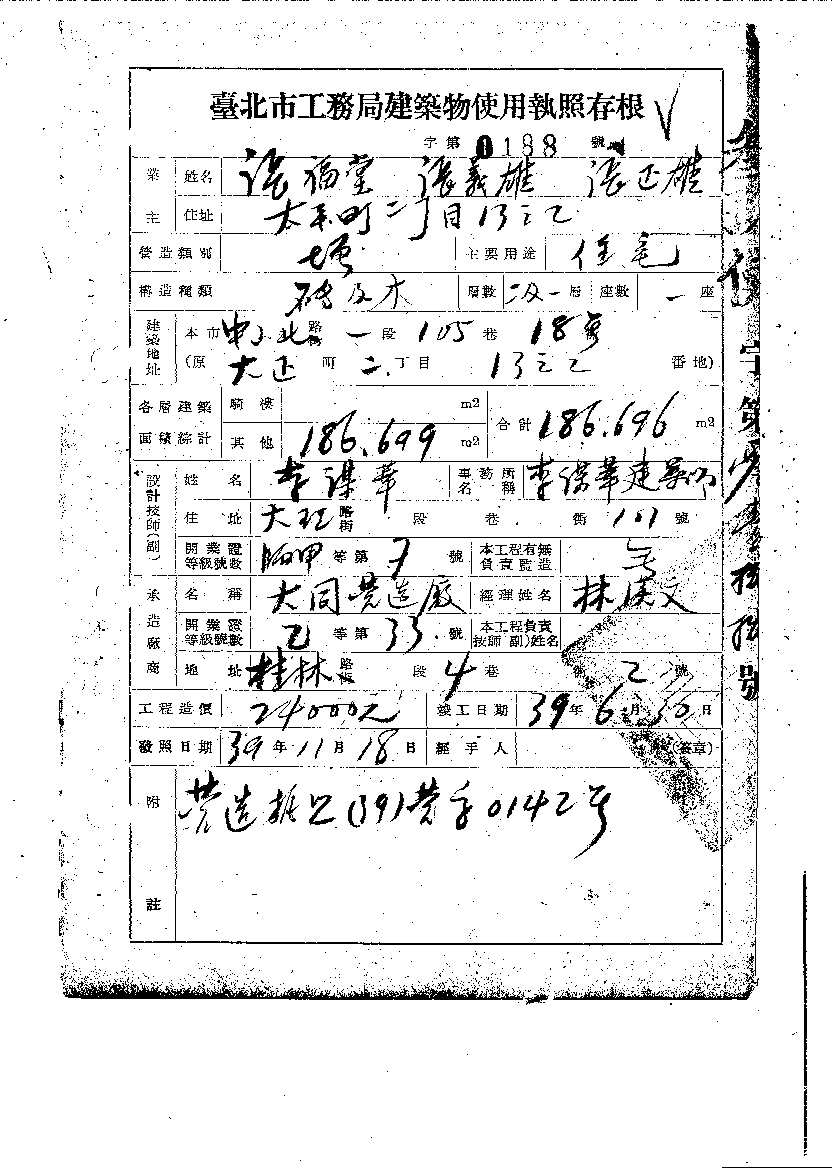 臺北市工務局建築物使用執照存根
字第 0188 號
業主 姓名 張福堂 張義雄 張正雄
住址 太平町二丁目13之乙
營造類別 增 主要用途 住宅
構造種類 磚及木 層數 二及一層 座數 一座
建築地址 本市 中山北路街一段105巷18號
(原 大正町二丁目 13之乙 番地)
各層建築面積綜計 騎樓 m2 合計 186.696 m2
其他 186.699 m2
設計技師(副) 姓名 李謀華 事務所名稱 李謀華建築師
住址 路街 段 巷 衖 101 號
開業證等級號數 甲等第 7 號 本工程有無負責監造 無
承造廠商 名稱 大同營造廠 經理姓名 林漢文
開業證等級號數 乙等第 33 號 本工程負責技師(副)姓名
地址 桂林路街 段 4 巷 2 號
工程造價 24000元 竣工日期 39年6月30日
發照日期 39年11月18日 經手人 (簽章)
附註 營造執照(39)營字0142號
字第
號